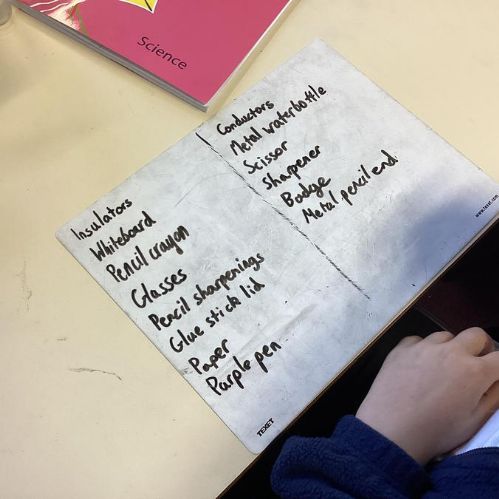 Science
Insulators
Whiteboard
Pencil crayon
Glasses
Pencil sharpenings
Glue stick lid
Paper
Purple pen
Conductors
Metal waterbottle
Scissor
Sharpener
Badge
Metal pencil end
TEXET